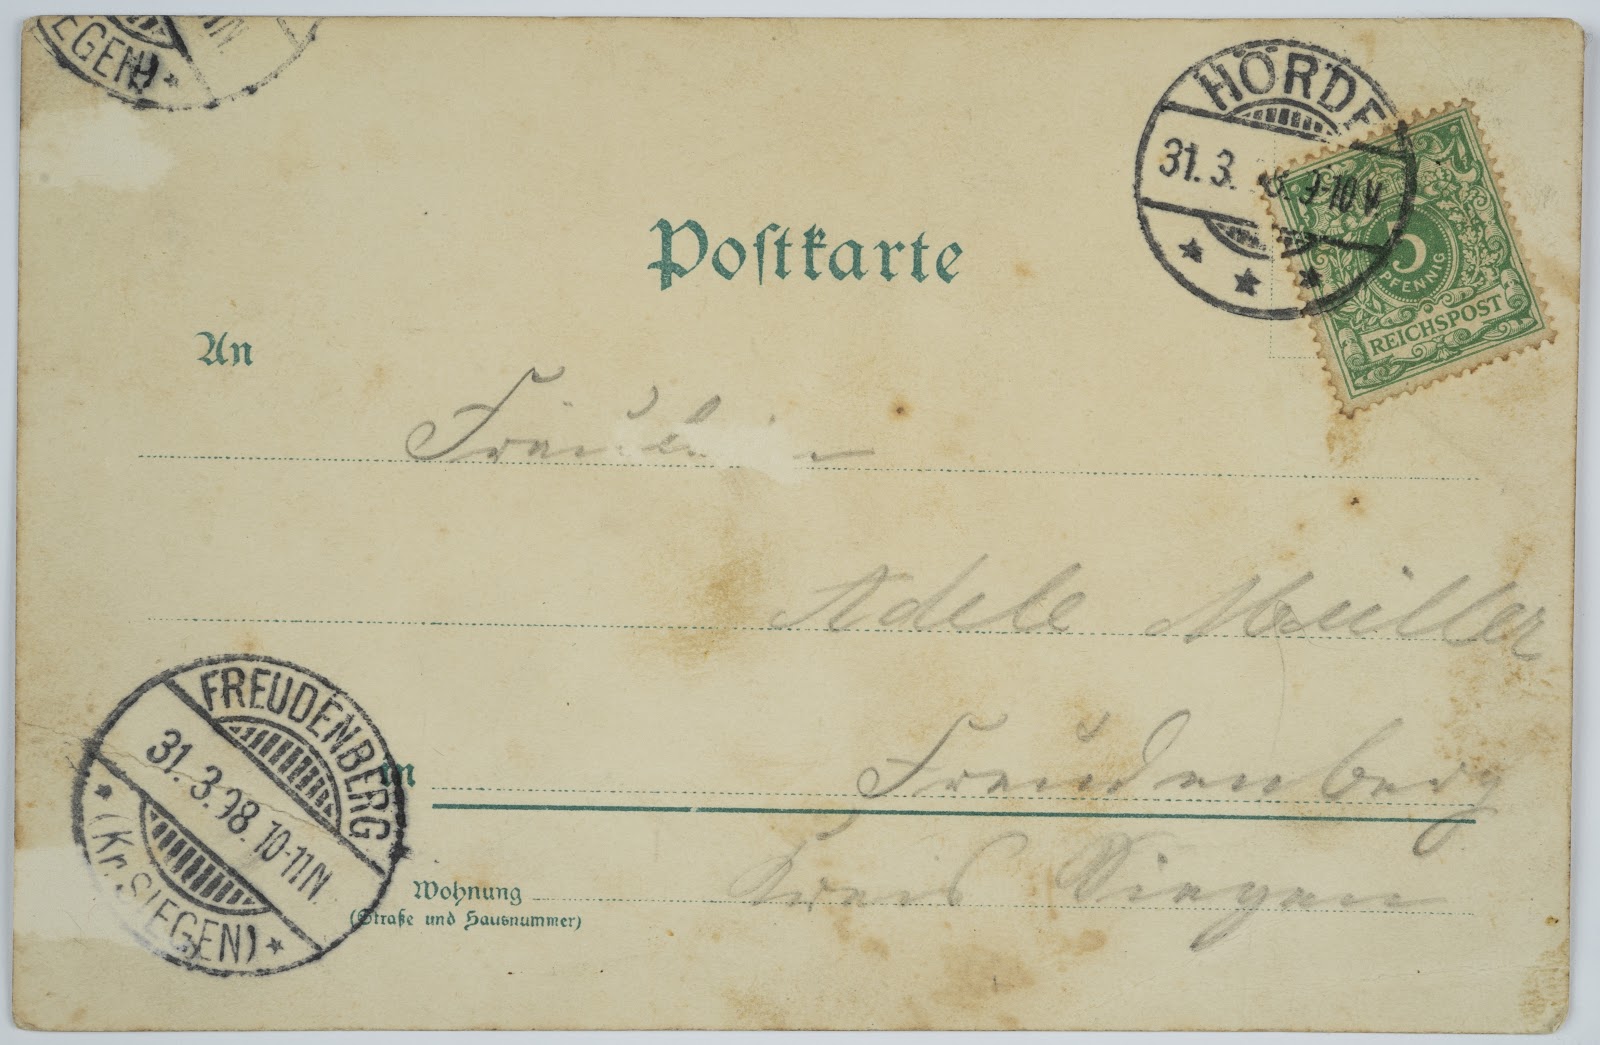 EGEN) *
HÖRDE
31.3. 9-10 V.
5
PFENNIG
REICHSPOST
Postkarte
An
Fräulein
Adele Müller
FREUDENBERG
31.3.98. 10-11 N.
* (Kr. SIEGEN) *
in Freudenberg
Wohnung Kreis Siegen
(Straße und Hausnummer)